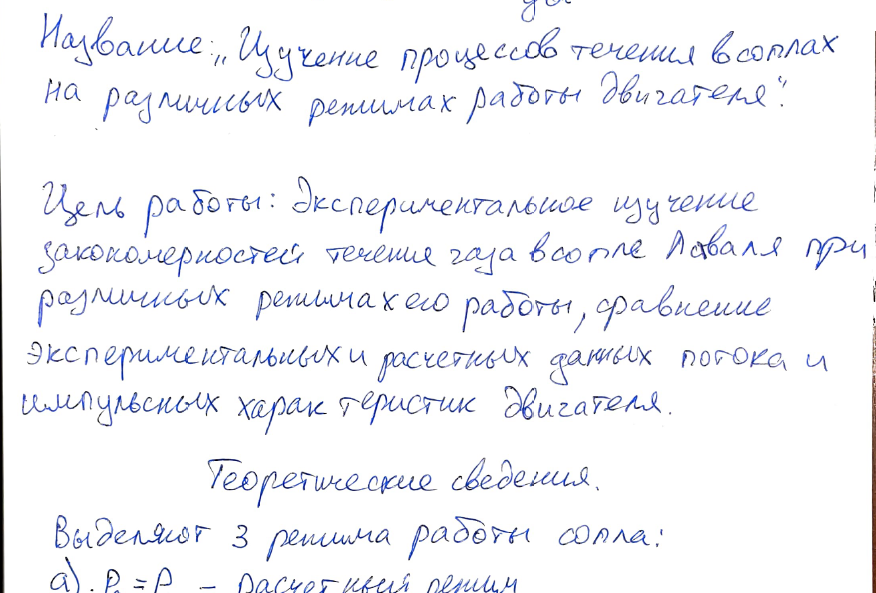 Название: „Изучение процессов течения в соплах
на различных режимах работы двигателя".
Цель работы: Экспериментальное изучение
закономерностей течения газа в сопле Лаваля при
различных режимах его работы, сравнение
экспериментальных и расчетных данных потока и
импульсных характеристик двигателя.
Теоретические сведения.
Выделяют 3 режима работы сопла:
а). P = P – расчетный режим